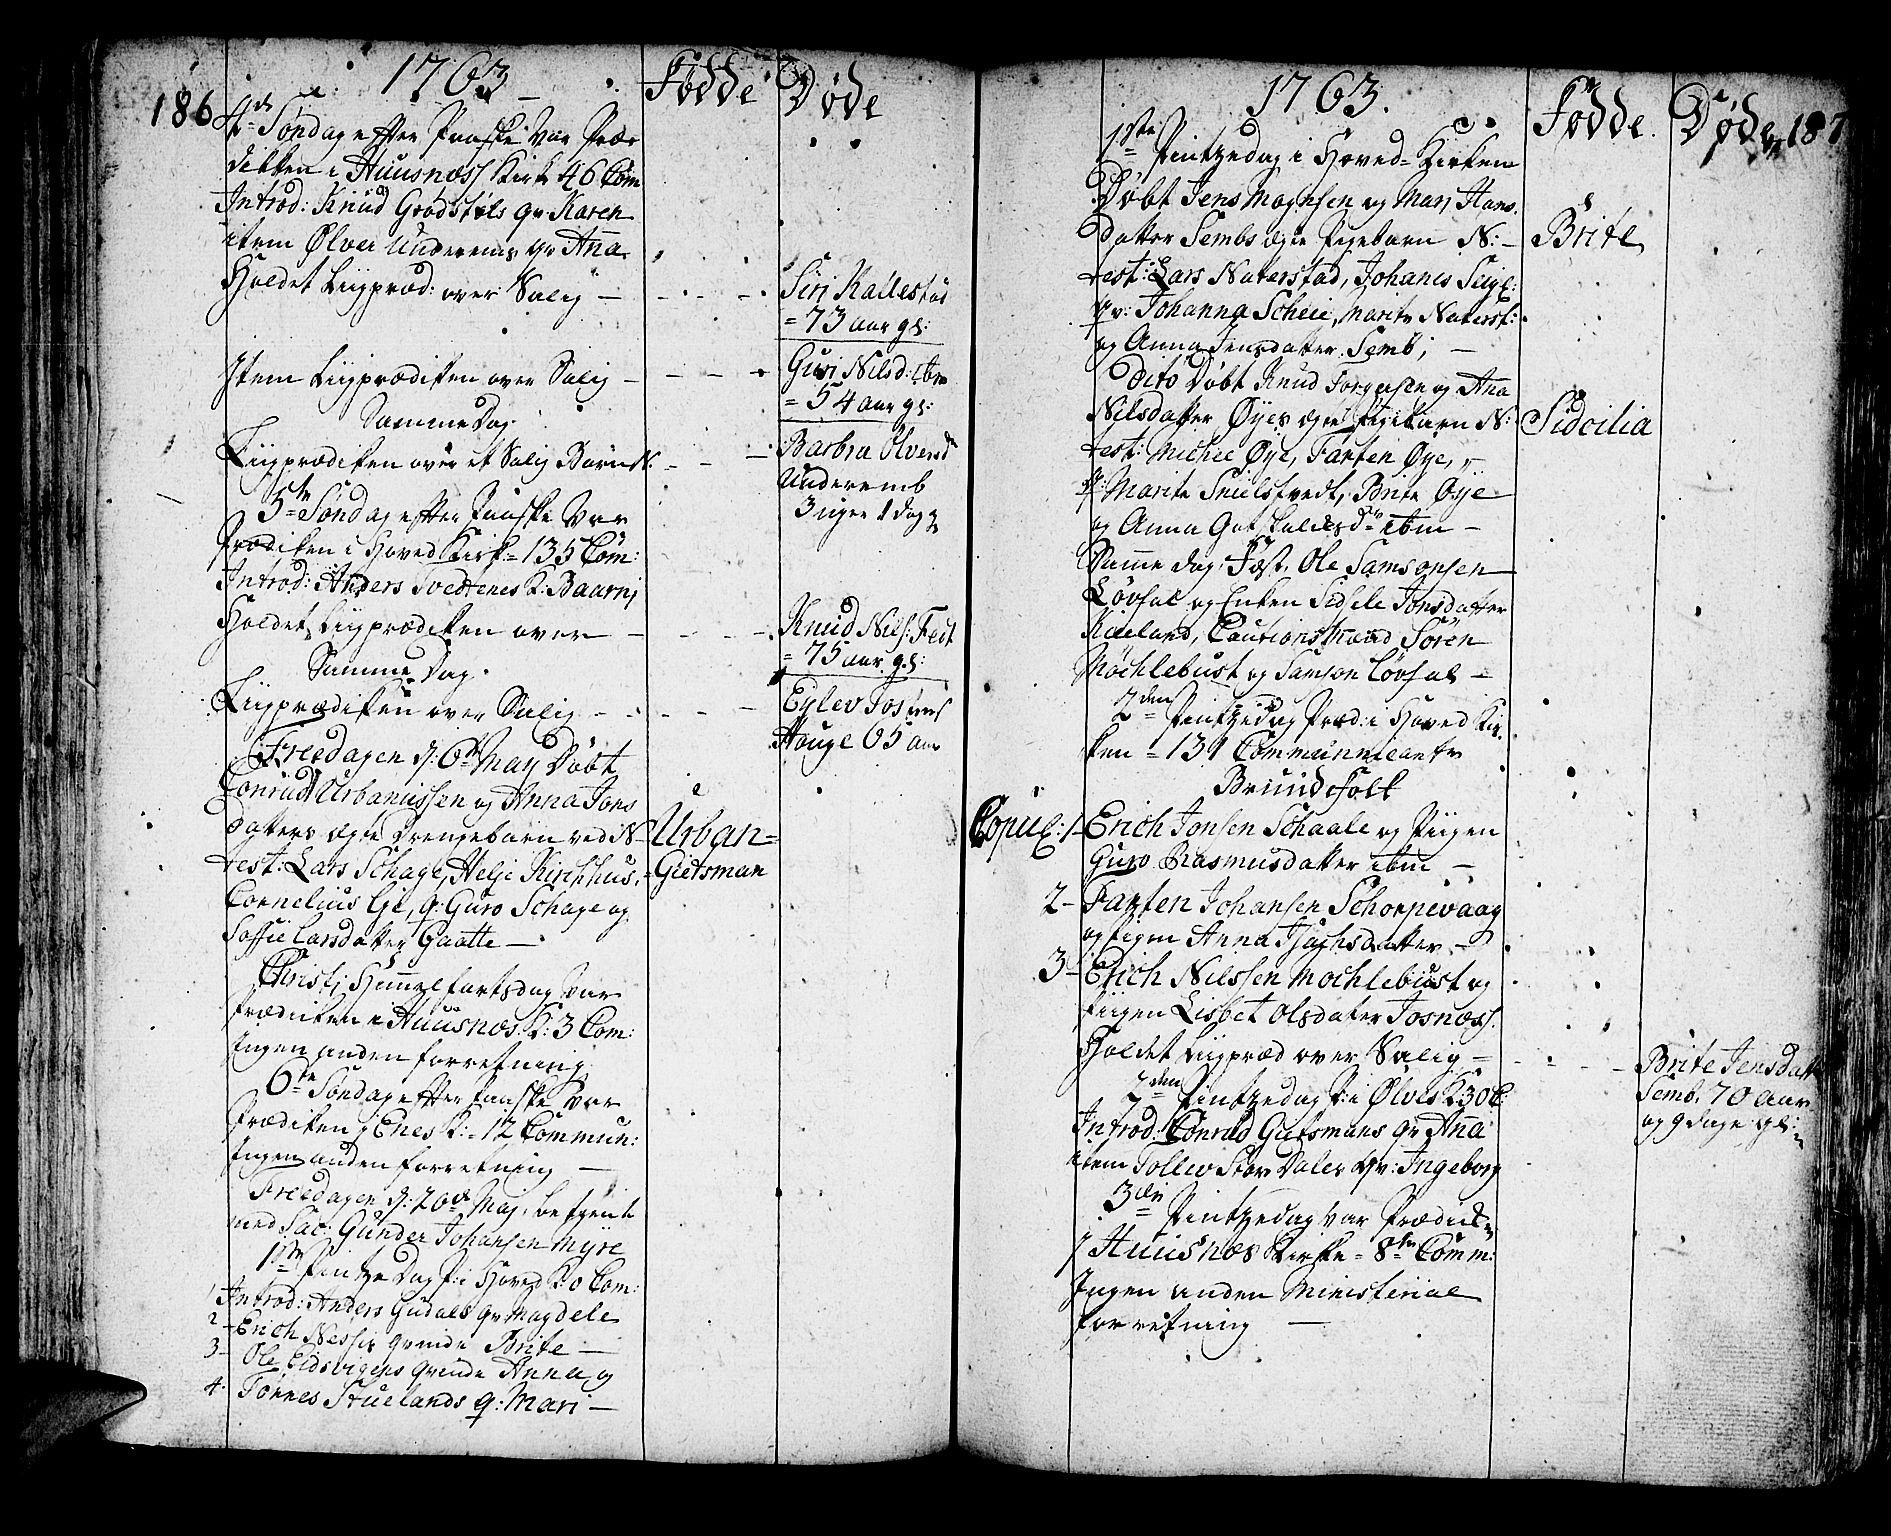 186
1763
Födde
Døde
4de Søndag effter Paaske var Præ-
diken i Huusnæss Kirke 46 Com
Introd: Knud Grodstøls qv Karen
item Ølver Underems qv Anna
Holdet Liigpræd: over Salig —
Siri Kallestad
= 73 aar gl:
Item Liigprædiken over Salig —
Guri Nilsd: ibm
= 54 aar gl:
Samme Dag
Liigprædiken over et Salig Barn N.
Barbra Olversd
Underemb
3 uger 1 dag
5te Søndag effter Paaske var
Prædiken i Hoved Kirk = 135 Com:
Introd: Anders Tvedtenes K: Baarni
Holdet Liigprædiken over —
Knud Nils: Fedt
= 75 aar gl:
Samme Dag
Liigprædiken over Salig —
Eylev Josnes
Houge 65 aar
Freedagen d: 6te May Döbt
Conrad Urbanussen og Anna Jons
datters ægte drengebarn ved N
Urban =
test: Lars Schage, Helje Kirchhus,
= Gietsman
Cornelius Lie, q: Guro Schage og
Soffie Larsdatter Gaatte —
Christi Himmelfartsdag var
Prædiken i Huusnæs K: 3 Com:
Ingen anden forretning
6te Søndag effter Paaske var
Prædiken i Enes K: = 12 Commun:
Ingen anden forretning —
Freedagen d: 20de Maj, betjent
med Sac: Gunder Johansen Myre
1ste Pintze Dag P: i Hoved K: 0 Com:
1 Introd: Anders Gudals qv Magdele
2 – Erich Nesses qvinde Brite —
3 – Ole Eidsvigens qvinde Anna og
4. Tønnes Stuelands q: Mari —
1763.
Födde.
Døde
187
1ste Pintzedag i Hoved = Kirken
Döbt Jens Mognsen og Mari Hans
datter Sembs ægte Pigebarn N: –
Brite
test: Lars Naterstad, Johanis Seigl:
qv: Johanna Scheie, Marite Naterst:
og Anna Jensdatter Semb; —
Dito Döbt Knud Torgersen og Anna
Nilsdatter Øyes ægte Pigebarn N:
Sidcilia
test: Michel Øye, Farten Øye,
q: Marite Snilstvedt, Brite Øye
og Anna Gotskalchsdr ibm –
Samme dag, Fæst. Ole Samsonsen
Løvfal og Enken Sidsele Jonsdatter
Kaeland, Cautionsmænd Søren
Möchlebust og Samson Løvfal –
2den Pintzedag Præd: i Hoved Kir-
ken = 131 Communicante
Bruudefolk
Copul: 1 – Erich Jonsen Schaale og Piigen
Guro Rasmusdatter ibm —
2 – Farten Johansen Schorpevaag
og Pigen Anna Isachsdatter –
3 – Erich Nilssen Mochlebust og
Piigen Lisbet Olsdater Josnæss.
Holdet Liigpræd over Salig –
Brite Jensdatt
Semb. 70 Aar
og 9 dage gl:
2den Pintzedag P: i Ølves K 30 C:
Introd: Conrad Gietsmans qv Anna
item Tollev Stordales qv: Ingeborg
3die Pintzedag var Prædiken
i Huusnæs Kirke = 8te Comm:
Ingen anden Ministerial
forretning —